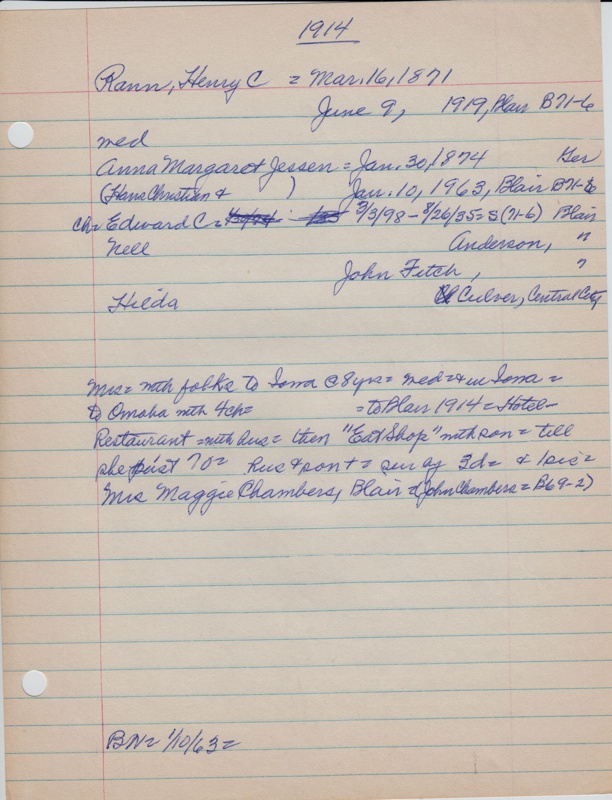 1914
Rann, Henry C = Mar. 16, 1871
June 9, 1919, Blair B71-6
med
Anna Margaret Jessen = Jan. 30, 1874 Ger
(Hans Christian & ) Jan. 10, 1963, Blair B71-6
Ch= Edward C = 3/3/98 - 8/26/35 = S (71-6) Blair
Nell Anderson, "
John Fitch, "
Hilda Culver, Central City
Mrs = with folks to Iowa @ 8 yrs = med = & in Iowa =
to Omaha with 4 ch = = to Blair 1914 = Hotel -
Restaurant = with hus = then "Eat Shop" with son = till
she past 70 = Hus & son + = sur by 3d = & 1 sis =
Mrs Maggie Chambers, Blair (John Chambers = B69-2)
BN = 1/10/63 =